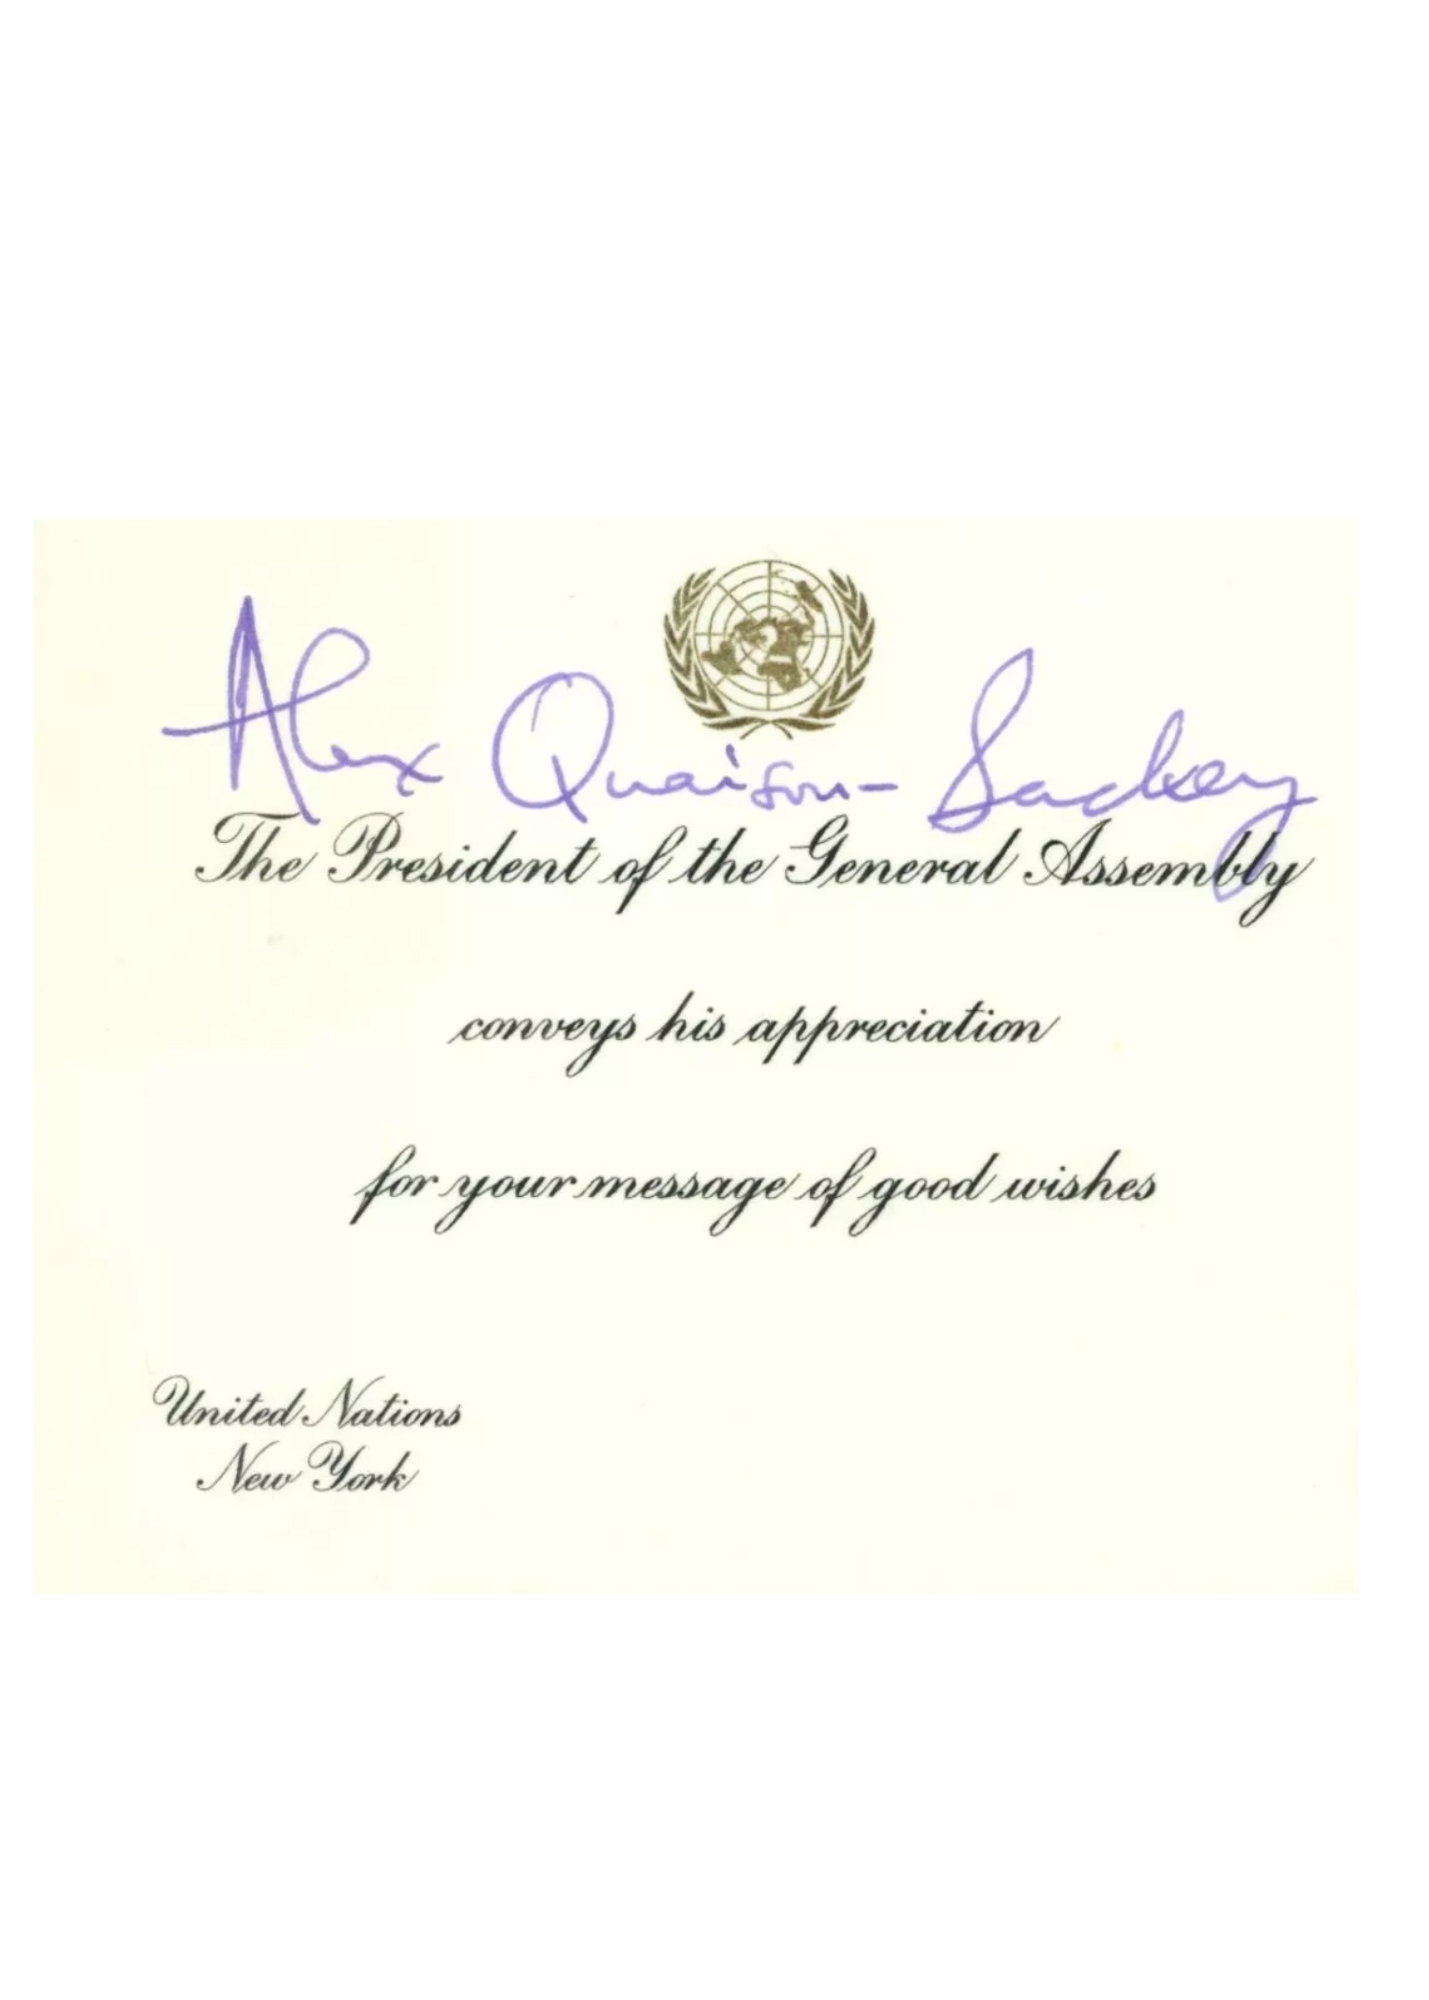 Alex Quaison-Sackey
The President of the General Assembly
conveys his appreciation
for your message of good wishes
United Nations
New York